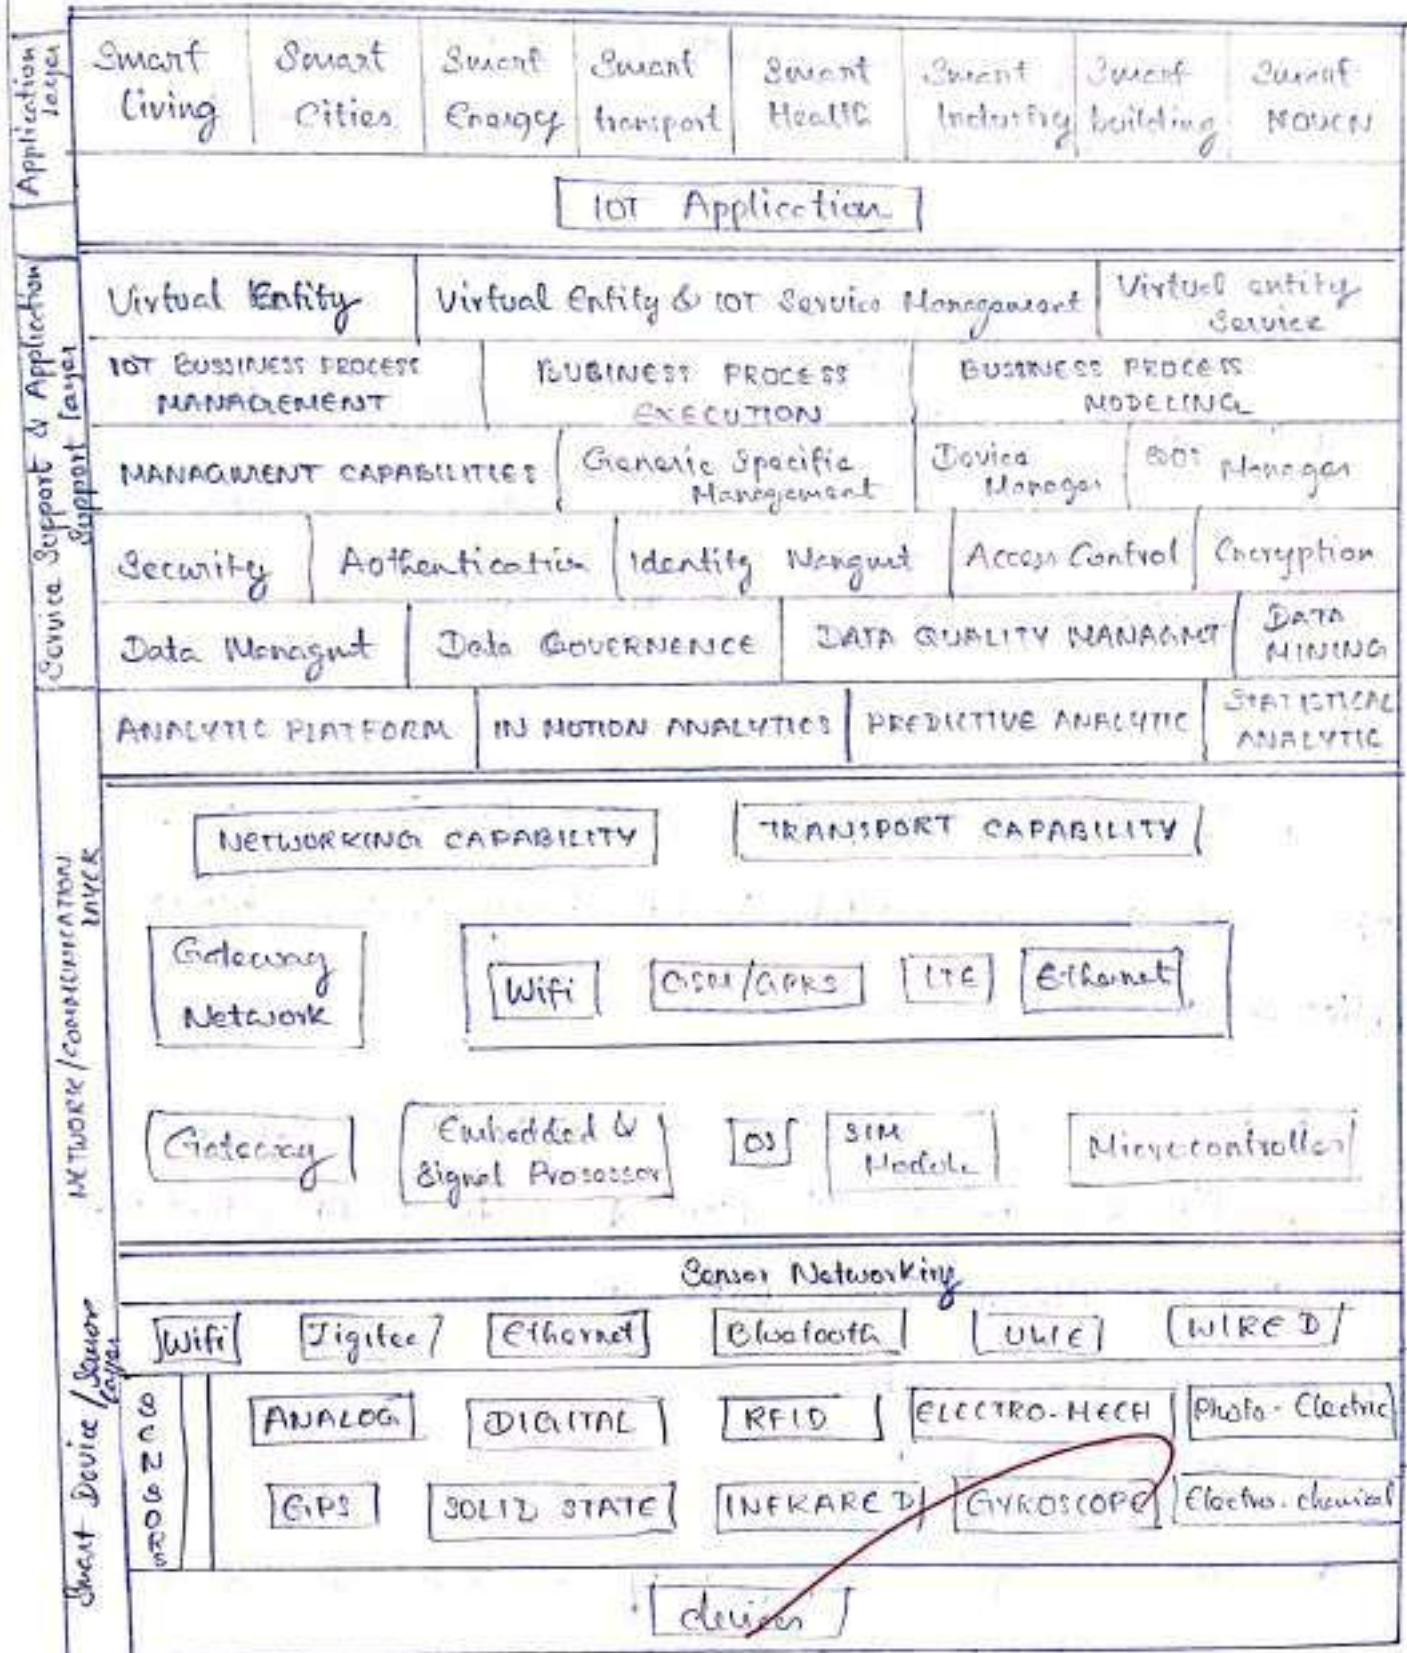 Application layer
Smart Living
Smart Cities
Smart Energy
Smart transport
Smart Health
Smart Industry
Smart building
Smart
IOT Application
Service Support & Application Support layer
Virtual Entity
Virtual Entity & IOT Service Management
Virtual entity Service
IOT BUSSINESS PROCESS MANAGEMENT
BUSINESS PROCESS EXECUTION
BUSINESS PROCESS MODELING
MANAGMENT CAPABILITIES
Generic Specific Management
Device Manager
Manager
Security
Authentication
Identity Mangmt
Access Control
Encryption
Data Managmt
Data GOVERNENCE
DATA QUALITY MANAGMT
DATA MINING
ANALYTIC PLATFORM
IN MOTION ANALYTICS
PREDICTIVE ANALYTIC
STATISTICAL ANALYTIC
NETWORK/COMMUNICATION LAYER
NETWORKING CAPABILITY
TRANSPORT CAPABILITY
Gateway Network
Wifi
GSM/GPRS
LTE
Ethernet
Gateway
Embedded & Signal Prosessor
OS
SIM Module
Microcontroller
Smart Device/Sensor layer
Sensor Networking
Wifi
Ethernet
Bluetooth
WIRED
SENSORS
ANALOG
DIGITAL
RFID
ELECTRO-MECH
Photo-Electric
GPS
SOLID STATE
INFRARED
GYROSCOPE
Electro-chemical
devices